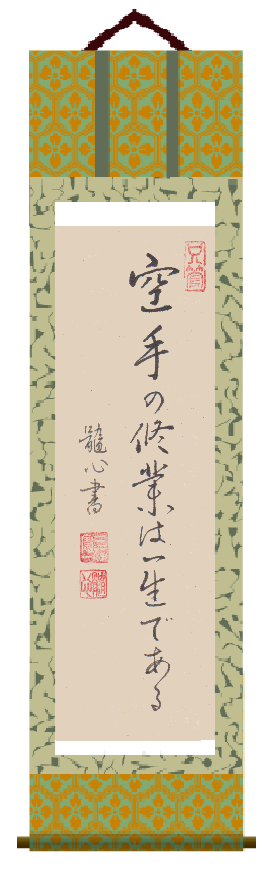 空手の修業は一生である
龍心書